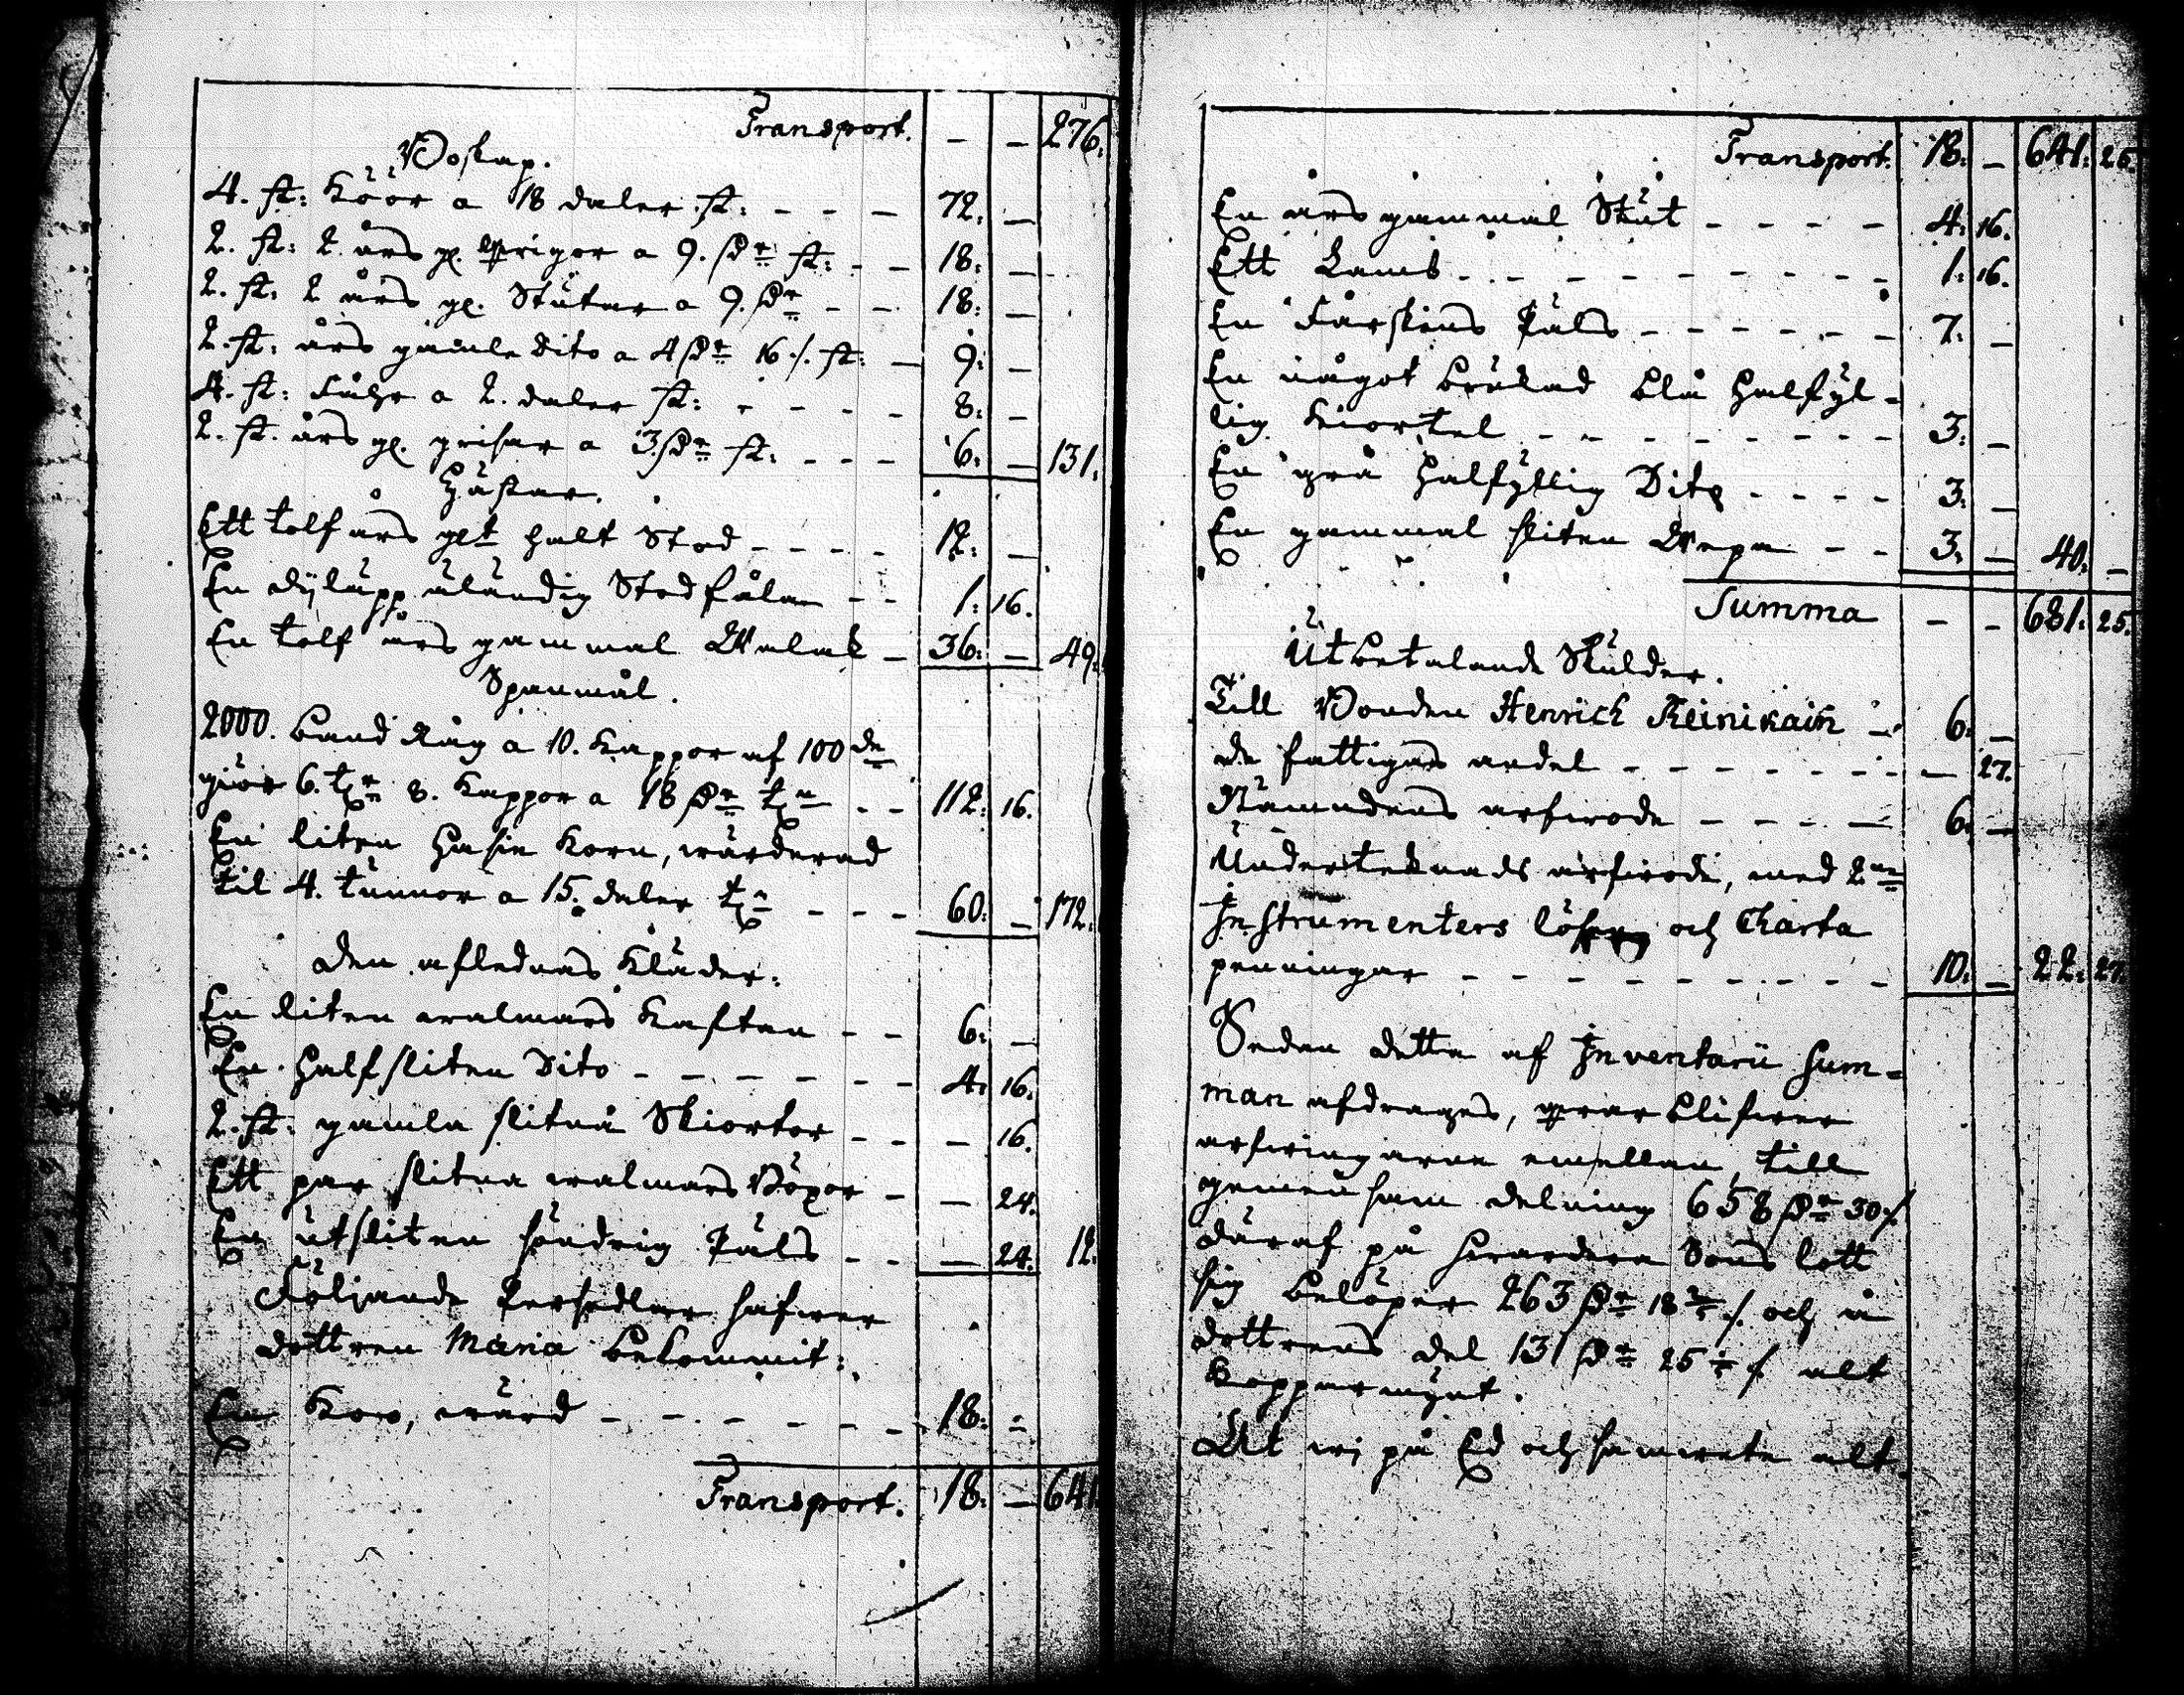 Transport. – – 276.
Boskap.
4. st: Köör a 18 daler st: – – – 72: –
2. st: 2. års gl. qvigor a 9. Dr st: – – 18: –
2. st: 2 års gl. Stutar a 9. Dr – – 18: –
2. st: års gamle dito a 4 Dr 16 /. st: – 9: –
4. st: Fåhr a 2. daler st: – – – – 8: –
2. st. års gl. grisar a 3 Dr st: – – – 6: – 131.
Hästar.
Ett tolf års glt halt Stod – – – – 12: –
En åländig Stodfåla – – 1: 16.
En tolf års gammal Walak – 36: – 49:
Spanmål.
2000. band Råg a 10. Kappor af 100de
giör 6. tr 8. Kappor a 18 Dr tn – – 112: 16.
En liten Hasie Korn, wärderad
til 4. tunnor a 15. daler tn – – – 60: – 172.
Den aflednas Kläder:
En liten walmars Kaftan – – 6: –
En halfsliten Dito – – – – – – 4: 16.
2. st: gamla slitna Skiortor – – – 16.
Ett par slitna walmars Böxor – – 24.
En utsliten söndrig Päls – – – 24. 12.
Följande Persedlar hafwer
dottren Maria bekommit:
En Kow, wärd – – – – – 18: –
Transport. 18: – 641
Transport. 18: – 641: 25.
En års gammal Stut – – – – 4: 16.
Ett Lamb – – – – – – – – 1: 16.
En Fårskins Päls – – – – – – 7: –
En något brukad blå halfyl-
lig Kiortel – – – – – – – – 3: –
En grå halfyllig Dito – – – – 3: –
En gammal sliten Wepa – – 3: – 40: –
Summa – – 681: 25.
Utbetalande Skulder.
Till Bonden Henrich Reinikain – 6: –
de fattigas andel – – – – – – – 27.
Nämndens arfwode – – – – 6: –
Underteknads arfwode, med 2ne
Instrumenters lösen och Charta
penningar – – – – – – – – 10: – 22: 27.
Sedan detta af Inventarii Sum-
man afdrages, qwar blifwer
arfwingarne emellan till
gemensam delning 658 Dr 30 /.
däraf på hwardera Sons lott
sig belöper 263 Dr 18 /. och å
dottrens del 131 Dr 25 /. alt
Kopparmynt.
At wi på Ed och samwete alt